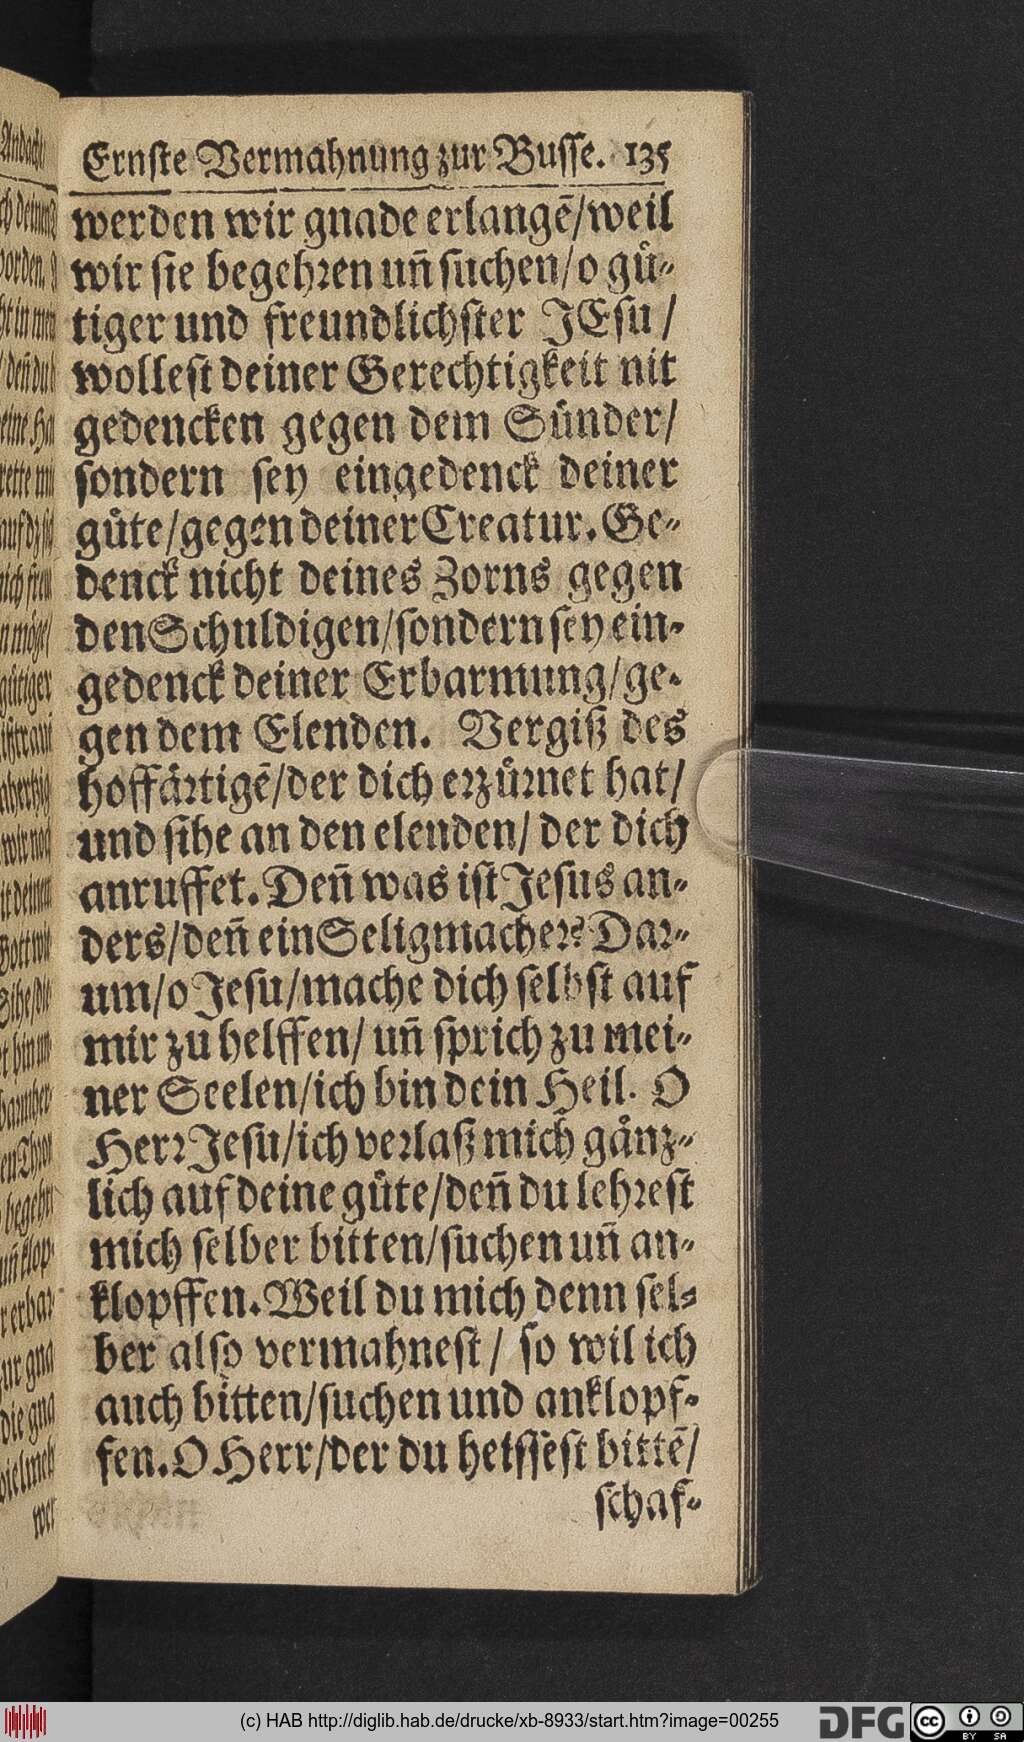 Ernste Vermahnung zur Busse. 135
werden wir gnade erlangē/weil
wir sie begehren uñ suchen/o guͤ-
tiger und freundlichster JEsu/
wollest deiner Gerechtigkeit nit
gedencken gegen dem Suͤnder/
sondern sey eingedenck deiner
guͤte/gegen deiner Creatur. Ge-
denck nicht deines Zorns gegen
den Schuldigen/sondern sey ein-
gedenck deiner Erbarmung/ge-
gen dem Elenden. Vergiß des
hoffaͤrtigē/der dich erzuͤrnet hat/
und sihe an den elenden/ der dich
anruffet. Deñ was ist Jesus an-
ders/deñ ein Seligmacher? Dar-
um/o Jesu/mache dich selbst auf
mir zu helffen/ uñ sprich zu mei-
ner Seelen/ich bin dein Heil. O
Herr Jesu/ich verlaß mich gaͤnz-
lich auf deine guͤte/deñ du lehrest
mich selber bitten/suchen uñ an-
klopffen. Weil du mich denn sel-
ber also vermahnest/ so wil ich
auch bitten/suchen und anklopf-
fen. O Herr/der du heissest bittē/
schaf-
(c) HAB http://diglib.hab.de/drucke/xb-8933/start.htm?image=00255
DFG
cc
BY SA